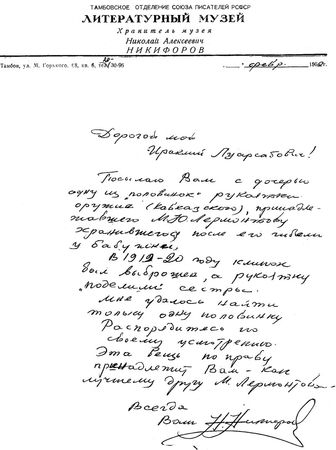 ТАМБОВСКОЕ ОТДЕЛЕНИЕ СОЮЗА ПИСАТЕЛЕЙ РСФСР
ЛИТЕРАТУРНЫЙ МУЗЕЙ
Хранитель музея
Николай Алексеевич
НИКИФОРОВ
Тамбов, ул. М. Горького, 48, кв. 6, 30-96
февр.
Дорогой мой
Ираклий Луарсабович!
Посылаю Вам с дочерью
одну из "половинок" рукоятки
оружия (кавказского), принадле-
жавшего М.Ю. Лермонтову
хранившегося после его гибели
у бабушки.
В 1919-20 году клинок
был выброшен, а рукоятку
"поделили" сестры.
Мне удалось найти
только одну половинку
Распорядитесь по
своему усмотрению.
Эта вещь по праву
принадлежит Вам - как
лучшему другу М. Лермонтова.
Всегда
Ваш Н Никифоров